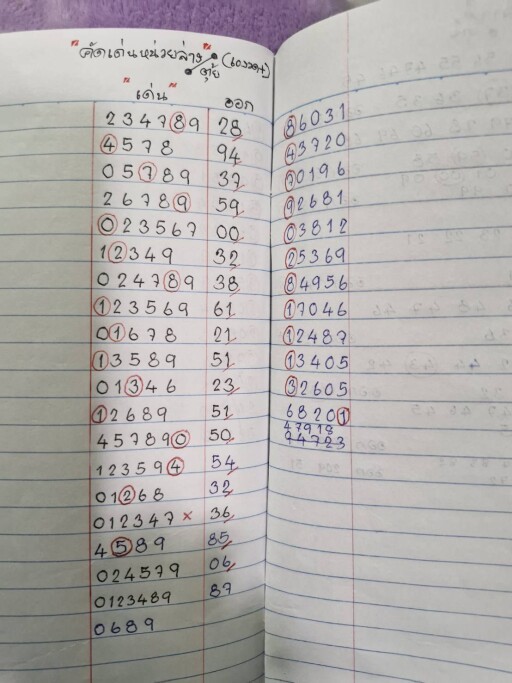 "คัดเด่นหน่วยล่าง" (เดงวด+)
ตุ้ย
"เด่น" ออก
234789 28
4578 94
05789 37
26789 59
023567 00
12349 32
024789 38
123569 61
01678 21
13589 51
01346 23
12689 51
457890 50
123594 54
01268 32
012347 × 36
4589 85
024579 06
0123489 87
0689
86031
43720
70196
92681
03812
25369
84956
17046
12487
13405
32605
68201
47918
94723